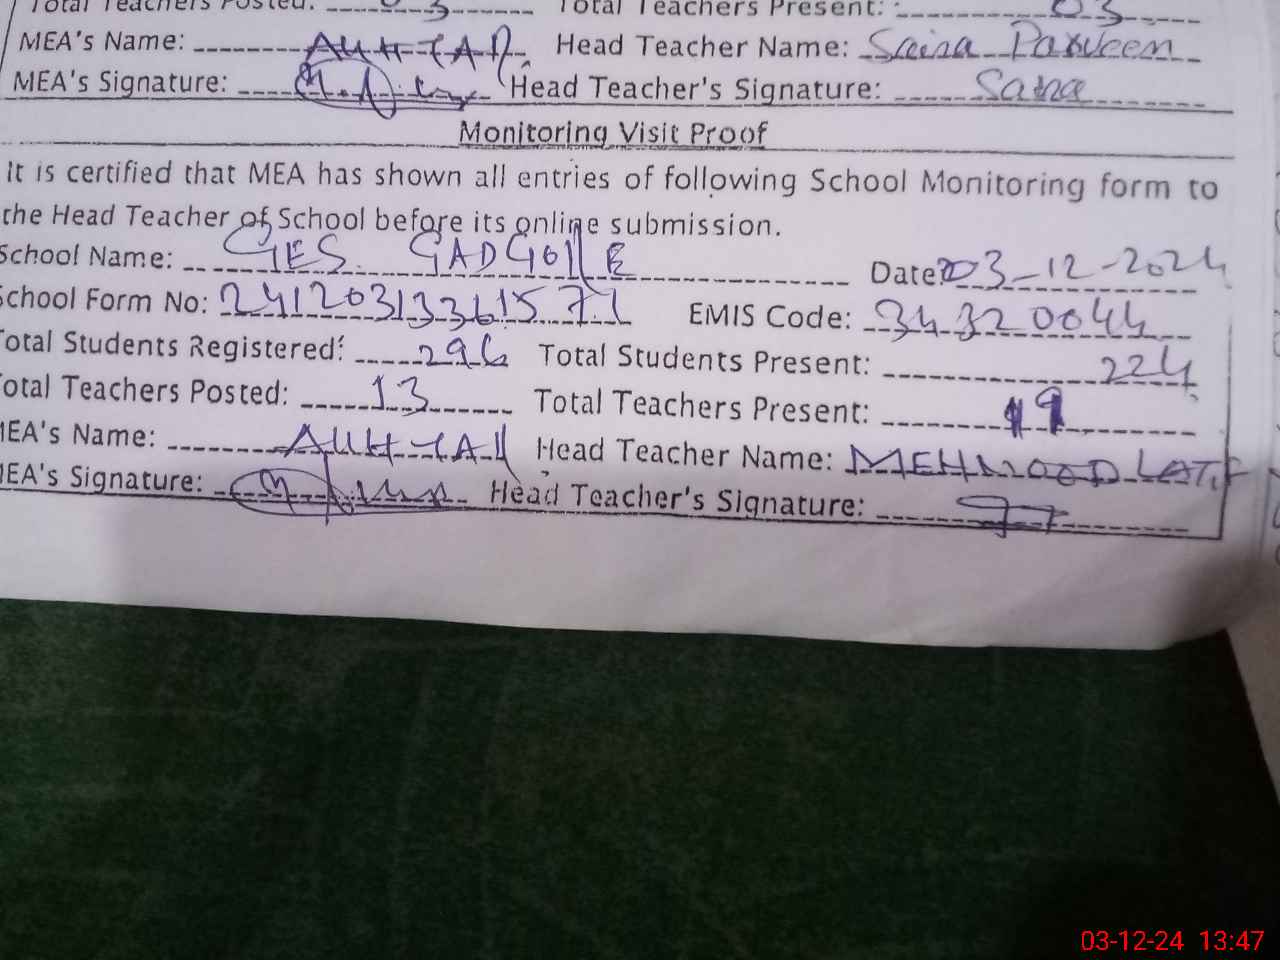 Total Teachers Posted: 03 Total Teachers Present: 03
MEA's Name: Head Teacher Name: Saira Parveen
MEA's Signature: Head Teacher's Signature: Saira
Monitoring Visit Proof
It is certified that MEA has shown all entries of following School Monitoring form to
the Head Teacher of School before its online submission.
School Name: GES GADGOllE Date: 03-12-2024
School Form No: 2412031336157 EMIS Code: 34320044
Total Students Registered: 296 Total Students Present: 224
Total Teachers Posted: 13 Total Teachers Present: 9
MEA's Name: Head Teacher Name: MEHMOOD LATIF
MEA's Signature: Head Teacher's Signature:
03-12-24 13:47